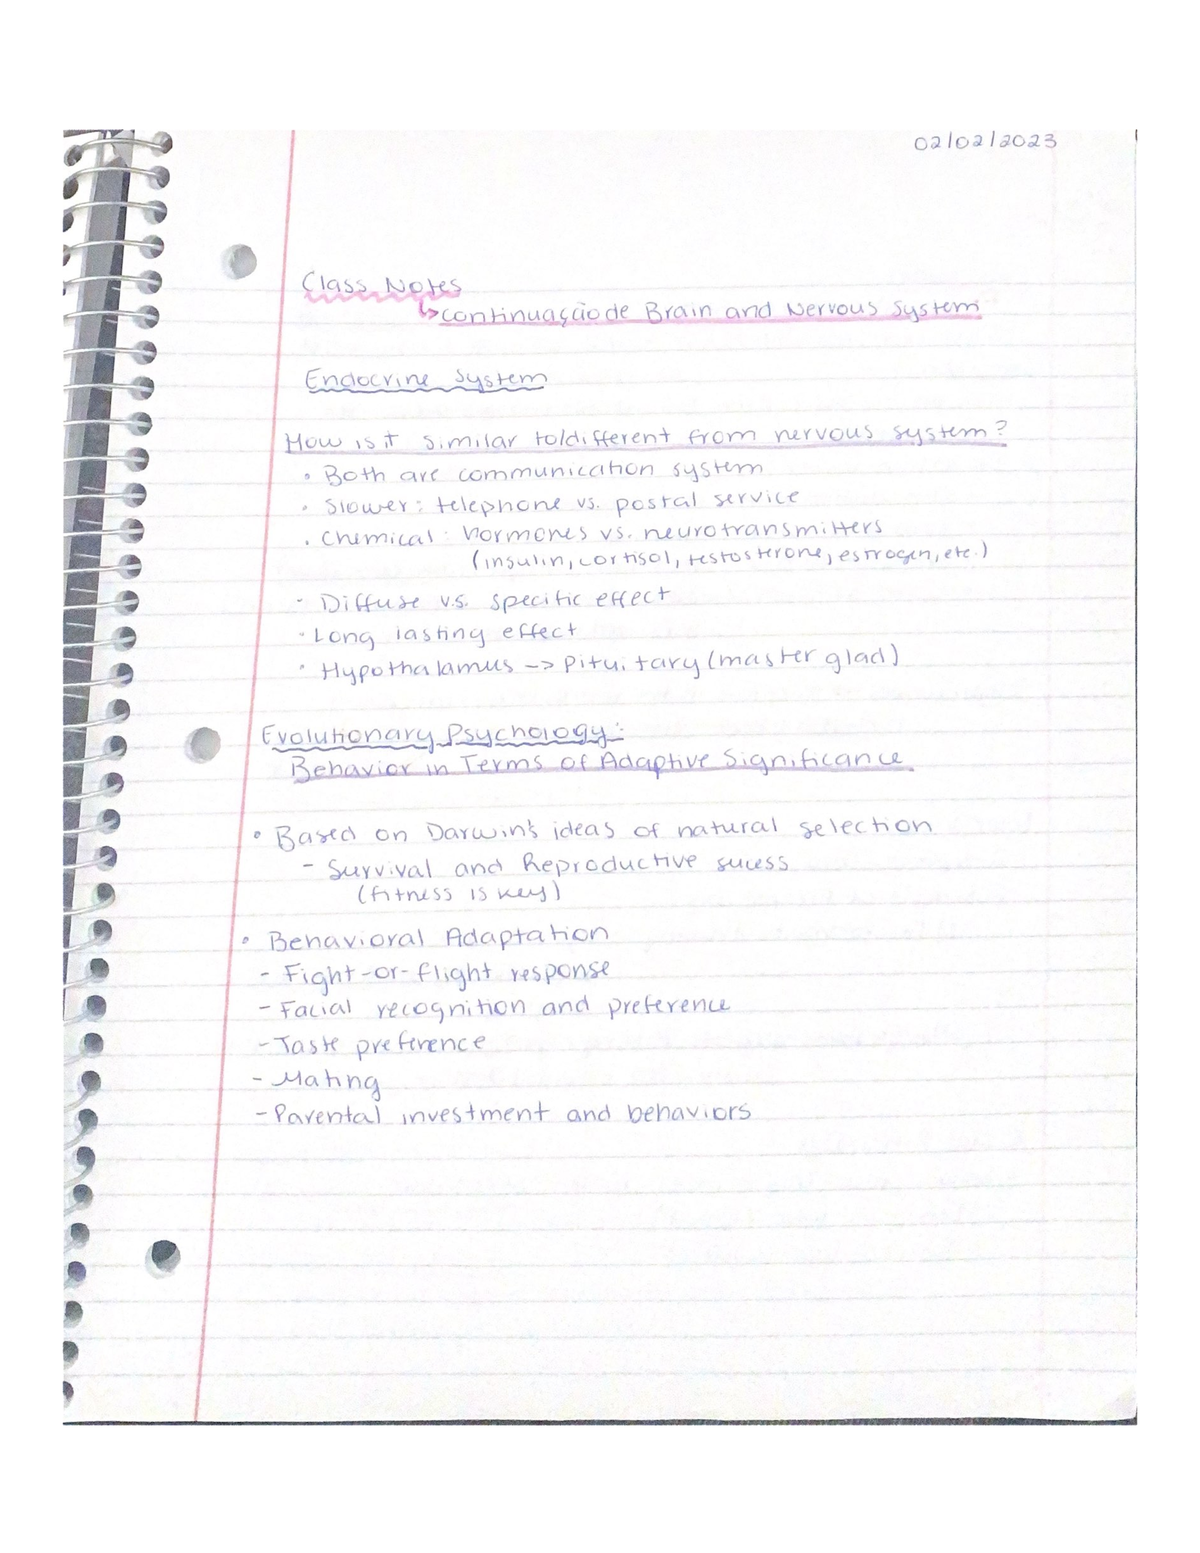 02/02/2023
Class Notes
↳continuação de Brain and Nervous System
Endocrine System
How is it similar to/different from nervous system?
• Both are communication system
• Slower: telephone vs. postal service
• Chemical: hormones vs. neurotransmitters
(insulin, cortisol, testosterone, estrogen, etc.)
- Diffuse v.s. specific effect
• Long lasting effect
• Hypothalamus -> Pituitary (master glad)
Evolutionary Psychology:
Behavior in Terms of Adaptive Significance
• Based on Darwin's ideas of natural selection
- Survival and Reproductive sucess
(fitness is key)
• Behavioral Adaptation
- Fight-or-flight response
- Facial recognition and preference
- Taste preference
- Mating
- Parental investment and behaviors